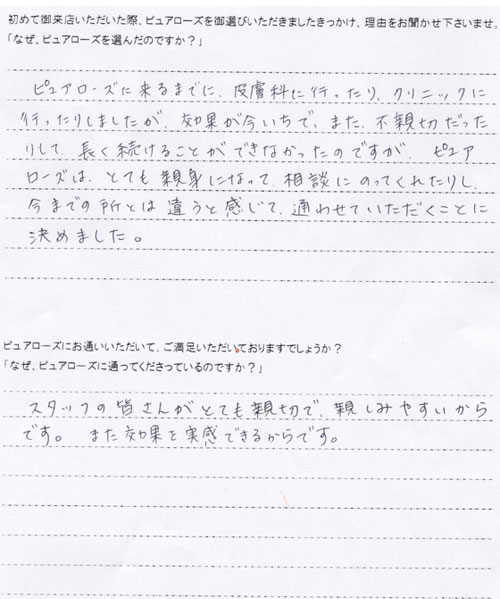 初めて御来店いただいた際、ピュアローズを御選びいただきましたきっかけ、理由をお聞かせ下さいませ。
「なぜ、ピュアローズを選んだのですか？」
ピュアローズに来るまでに、皮膚科に行ったり、クリニックに
行ったりしましたが、効果が今いちで、また、不親切だった
りして、長く続けることができなかったのですが、ピュア
ローズは、とても親身になって、相談にのってくれたりし、
今までの所とは違うと感じて、通わせていただくことに
決めました。
ピュアローズにお通いいただいて、ご満足いただいておりますでしょうか？
「なぜ、ピュアローズに通ってくださっているのですか？」
スタッフの皆さんがとても親切で、親しみやすいから
です。 また効果を実感できるからです。